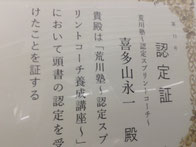 認定証
荒川塾～認定スプリントコーチ～
喜多山永一 殿
貴殿は「荒川塾～認定スプ
リントコーチ養成講座～」
において頭書の認定を受
けたことを証する